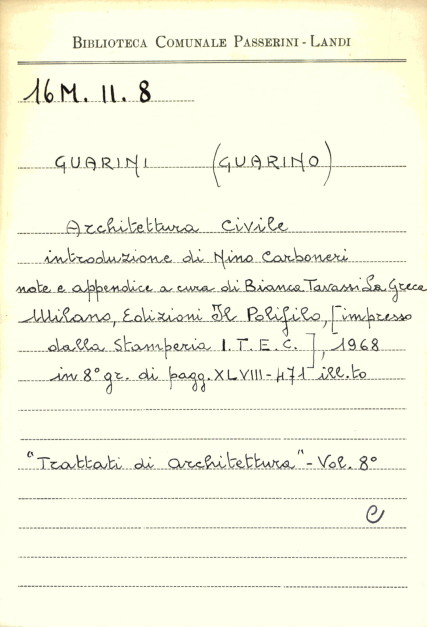 BIBLIOTECA COMUNALE PASSERINI - LANDI
16 M. II. 8
GUARINI (GUARINO)
Architettura Civile
introduzione di Nino Carboneri
note e appendice a cura di Bianca Tavassi La Greca
Milano, Edizioni Il Polifilo, [impresso
dalla Stamperia I. T. E. C.], 1968
in 8° gr. di pagg. XLVIII - 471 ill.to
"Trattati di architettura" - Vol. 8°
e